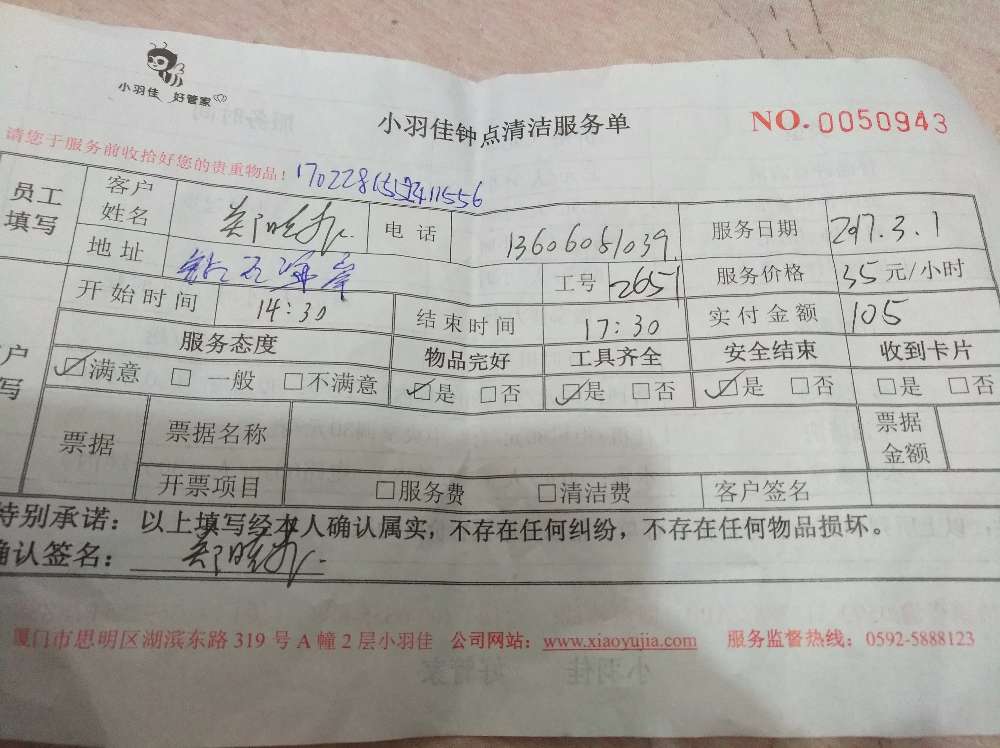 小羽佳 好管家
小羽佳钟点清洁服务单
NO. 0050943
请您于服务前收拾好您的贵重物品！
员工填写 客户姓名 电话 13606081039 服务日期 2017.3.1
地址 钻石海岸 工号 2651 服务价格 35元/小时
开始时间 14:30 结束时间 17:30 实付金额 105
服务态度 物品完好 工具齐全 安全结束 收到卡片
☑满意 □一般 □不满意 ☑是 □否 ☑是 □否 ☑是 □否 □是 □否
票据 票据名称 票据金额
开票项目 □服务费 □清洁费 客户签名
特别承诺：以上填写经本人确认属实，不存在任何纠纷，不存在任何物品损坏。
确认签名：
厦门市思明区湖滨东路 319 号 A 幢 2 层小羽佳 公司网站：www.xiaoyujia.com 服务监督热线：0592-5888123